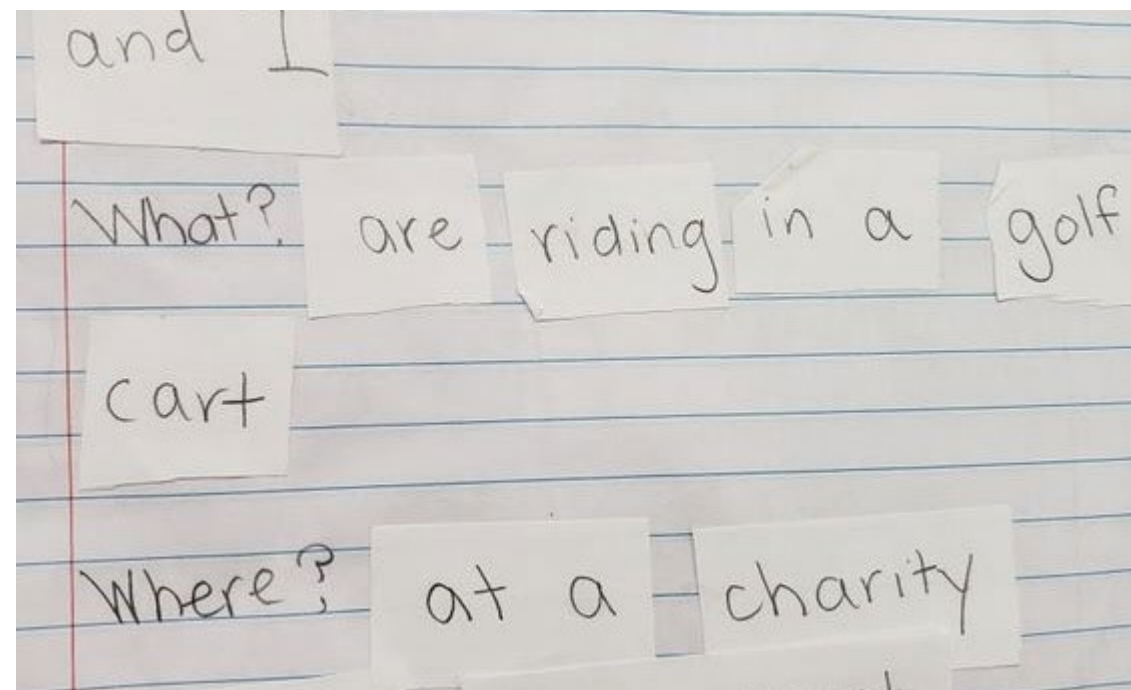 and I
What? are riding in a golf
cart
Where? at a charity